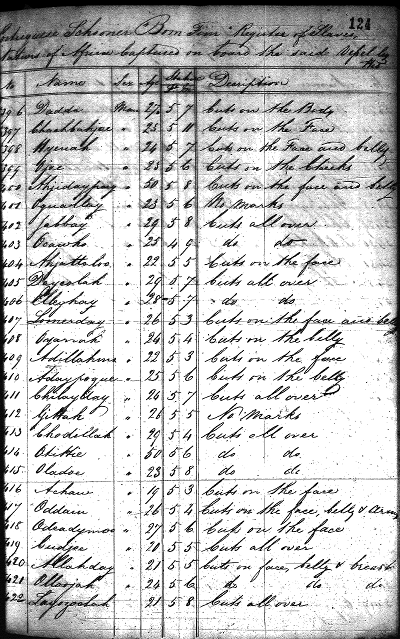 124
Portuguese Schooner Bom Fim Register of Slaves
Natives of Africa Captured on board the said Vessel by
the
No Name Sex Age Stature Description
396 Dadda Man 27 5 7 Cuts on the Body
397 25 5 11 Cuts on the Face
398 24 5 7 Cuts on the Face and belly
399 Ojoe 25 5 6 Cuts on the Cheeks
400 30 5 8 Cuts on the face and belly
401 23 5 6 No marks
402 Jabbay 29 5 8 Cuts all over
403 25 4 9 do do
404 22 5 5 Cuts on the face
405 29 5 7 Cuts all over
406 Olleyhay 28 5 7 do do
407 Lomerday 26 5 3 Cuts on the face and belly
408 24 5 4 Cuts on the belly
409 Adillahma 22 5 3 Cuts on the face
410 Adaypoque 25 5 6 Cuts on the belly
411 Chilayday 26 5 7 Cuts all over
412 Gittah 26 5 5 No Marks
413 Chodillah 29 5 4 Cuts all over
414 Otittie 30 5 6 do do
415 Oladoe 23 5 8 do do
416 19 5 3 Cuts on the face
417 Oddain 26 5 4 Cuts on the face, belly & arms
418 Odeadymoo 27 5 6 Cuts on the face
419 Cudjoe 20 5 5 Cuts all over
420 Allahday 21 5 5 Cuts on face, belly & breast
421 Ollaojah 24 5 6 do do do
422 21 5 8 Cuts all over